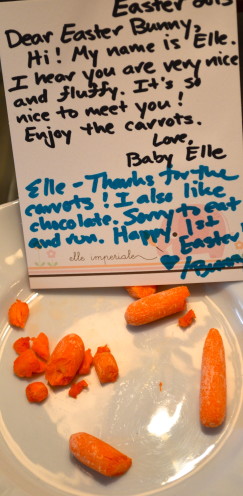 Easter 2013
Dear Easter Bunny,
Hi! My name is Elle.
I hear you are very nice
and fluffy. It's so
nice to meet you!
Enjoy the carrots.
Love,
Baby Elle
Elle - Thanks for the
carrots! I also like
chocolate. Sorry to eat
and run. Happy 1st
Easter!
Bunny
elle imperiale